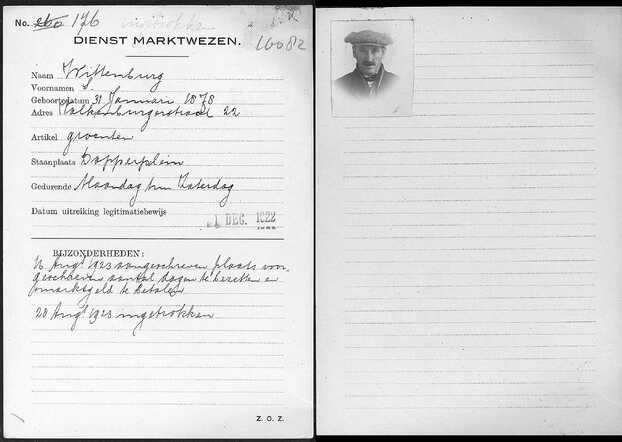 No. 260 176 ingetrokken
DIENST MARKTWEZEN.
16082
Naam Wittenburg
Voornamen S.
Geboortedatum 31 Januari 1878
Adres Valkenburgerstraat 22
Artikel groenten
Staanplaats Dapperplein
Gedurende Maandag t/m Zaterdag
Datum uitreiking legitimatiebewijs 1 DEC. 1922
BIJZONDERHEDEN:
16 Augs 1923 aangeschreven plaats voor
geschreven aantal dagen te bezetten en
marktgeld te betalen
28 Augs 1923 ingetrokken
Z. O. Z.